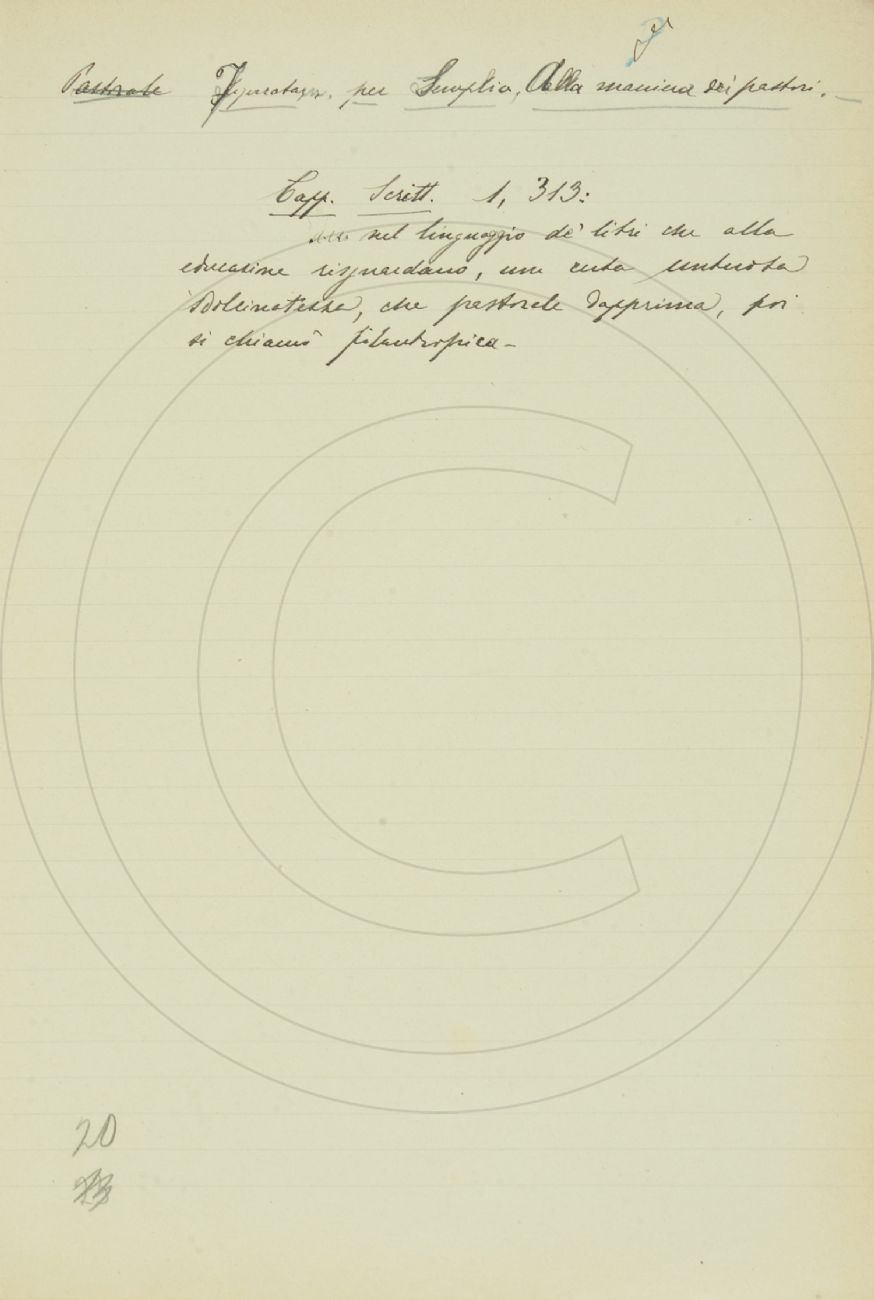 F
Pastorale Figuratam. per Semplice, Alla maniera dei pastori. —
Capp. Scritt. 1, 313:
nel linguaggio de' libri che alla
educazione risguardano, una certa untuosa
sdolcinatezza, che pastorale dapprima, poi
si chiamò filantropica –
20